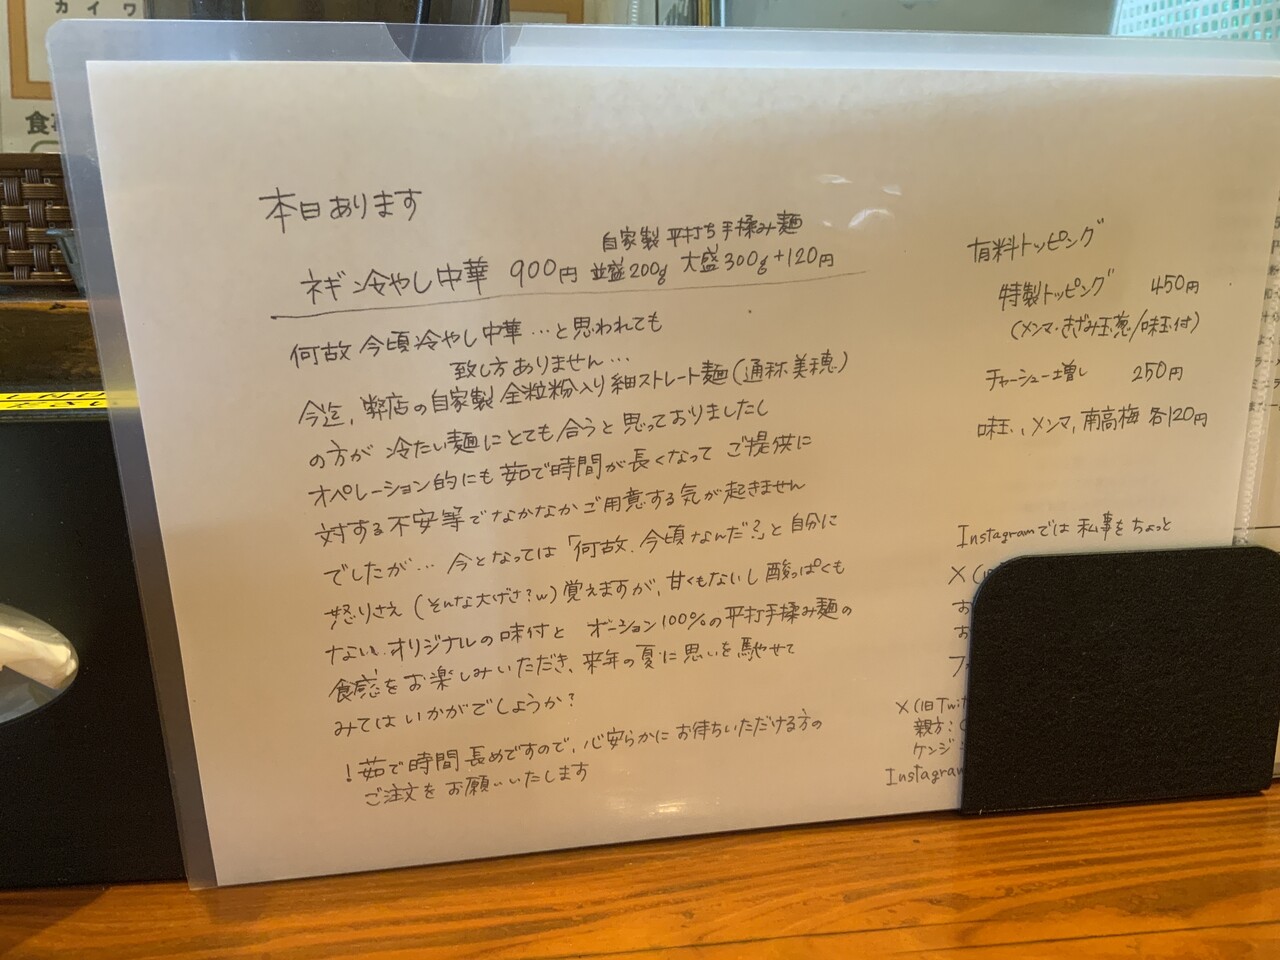 カイワ
食
本日あります
自家製 平打ち手揉み麺
ネギ 冷やし中華 900円 並盛200g 大盛300g+120円
何故 今頃 冷やし中華…と思われても
致し方ありません…
今迄、弊店の自家製 全粒粉入り 細ストレート麺(通称 美穂)
の方が 冷たい麺にとても合うと思っておりましたし
オペレーション的にも 茹で時間が長くなって ご提供に
対する不安等でなかなかご用意する気が起きません
でしたが… 今となっては「何故、今頃なんだ?」と自分に
怒りさえ(そんな大げさ?w)覚えますが、甘くもないし 酸っぱくも
ないし、オリジナルの味付と オーション100%の平打手揉み麺の
食感をお楽しみいただき、来年の夏に思いを馳せて
みてはいかがでしょうか?
!茹で時間長めですので、心安らかにお待ちいただける方の
ご注文をお願いいたします
有料トッピング
特製トッピング 450円
(メンマ・きざみ玉葱/味玉付)
チャーシュー増し 250円
味玉、メンマ、南高梅 各120円
Instagramでは 私事をちょっと
X(旧
お
お
フ
X(旧Twi
親方:
ケンジ:
Instagram